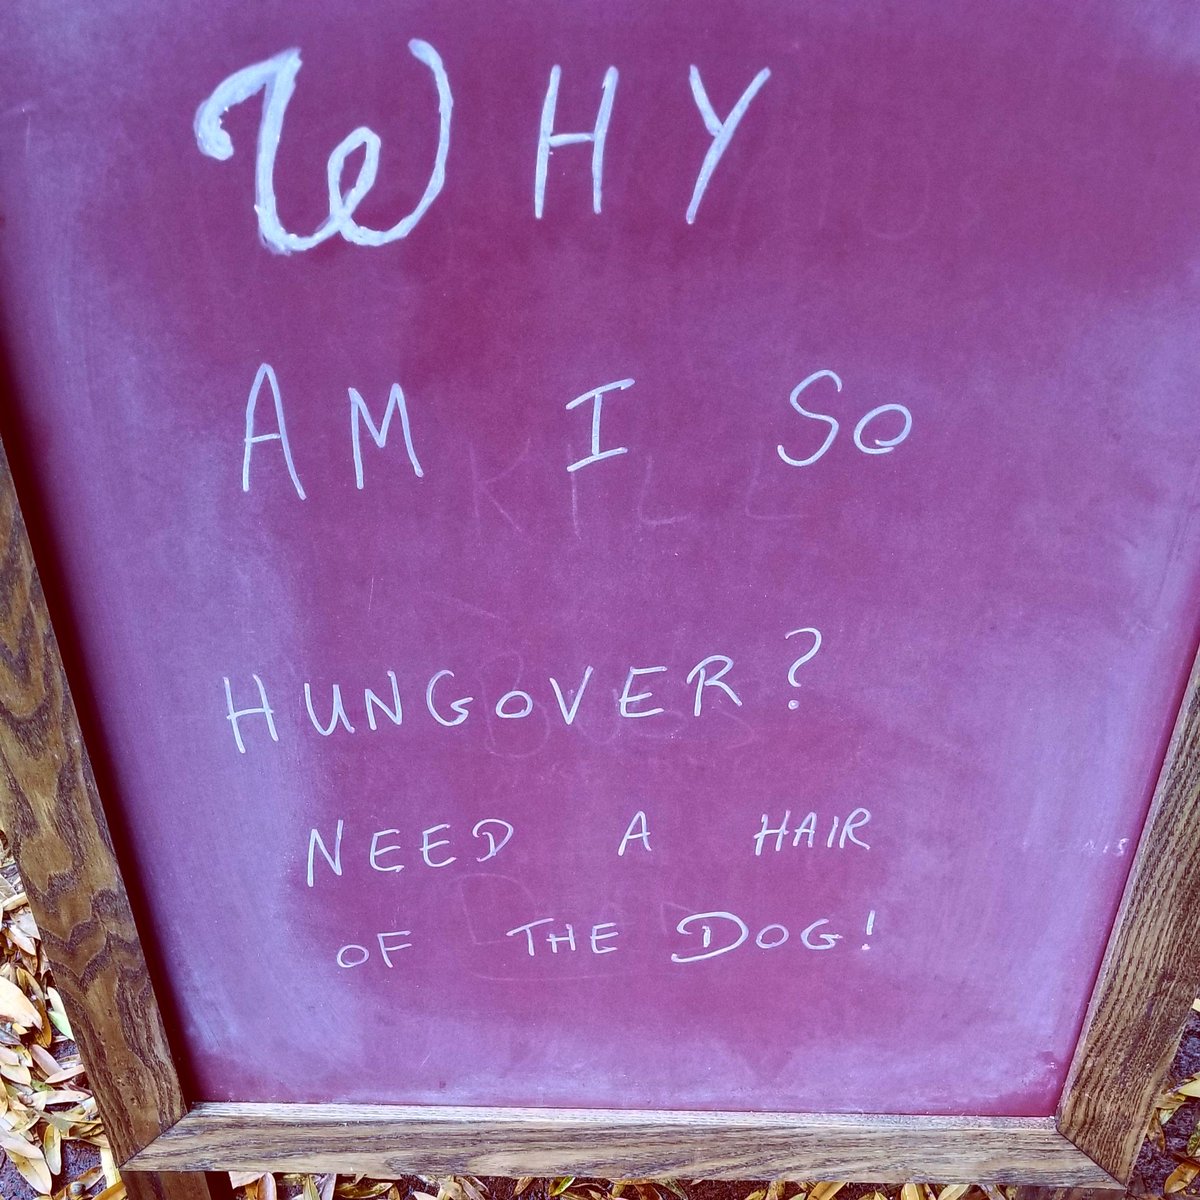 WHY
AM I SO
HUNGOVER?
NEED A HAIR
OF THE DOG!